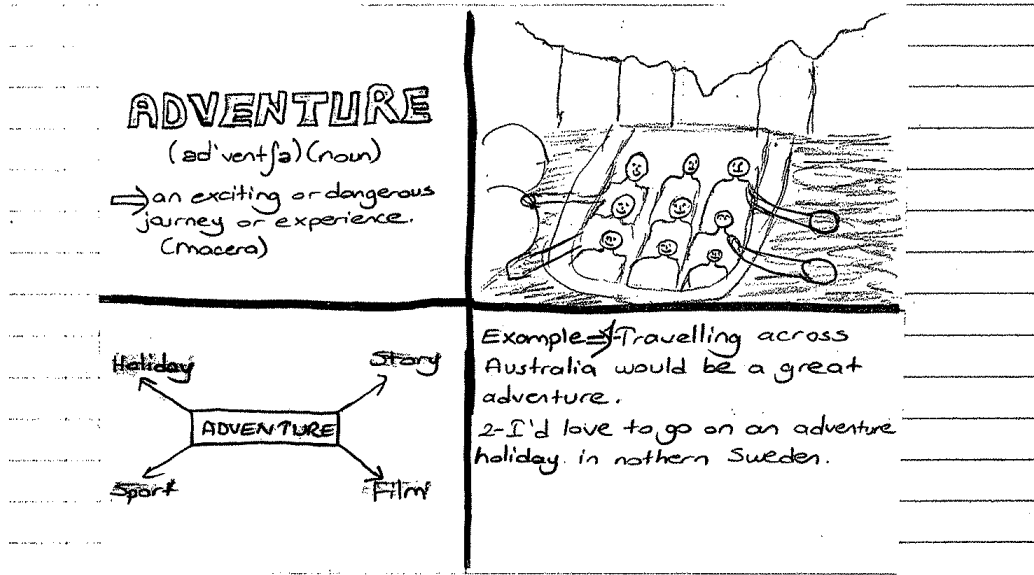 ADVENTURE
(əd'ventʃə) (noun)
⇒ an exciting or dangerous
journey or experience.
(macera)
Holiday
Story
ADVENTURE
Sport
Film
Example ⇒ 1-Travelling across
Australia would be a great
adventure.
2-I'd love to go on an adventure
holiday in nothern Sweden.